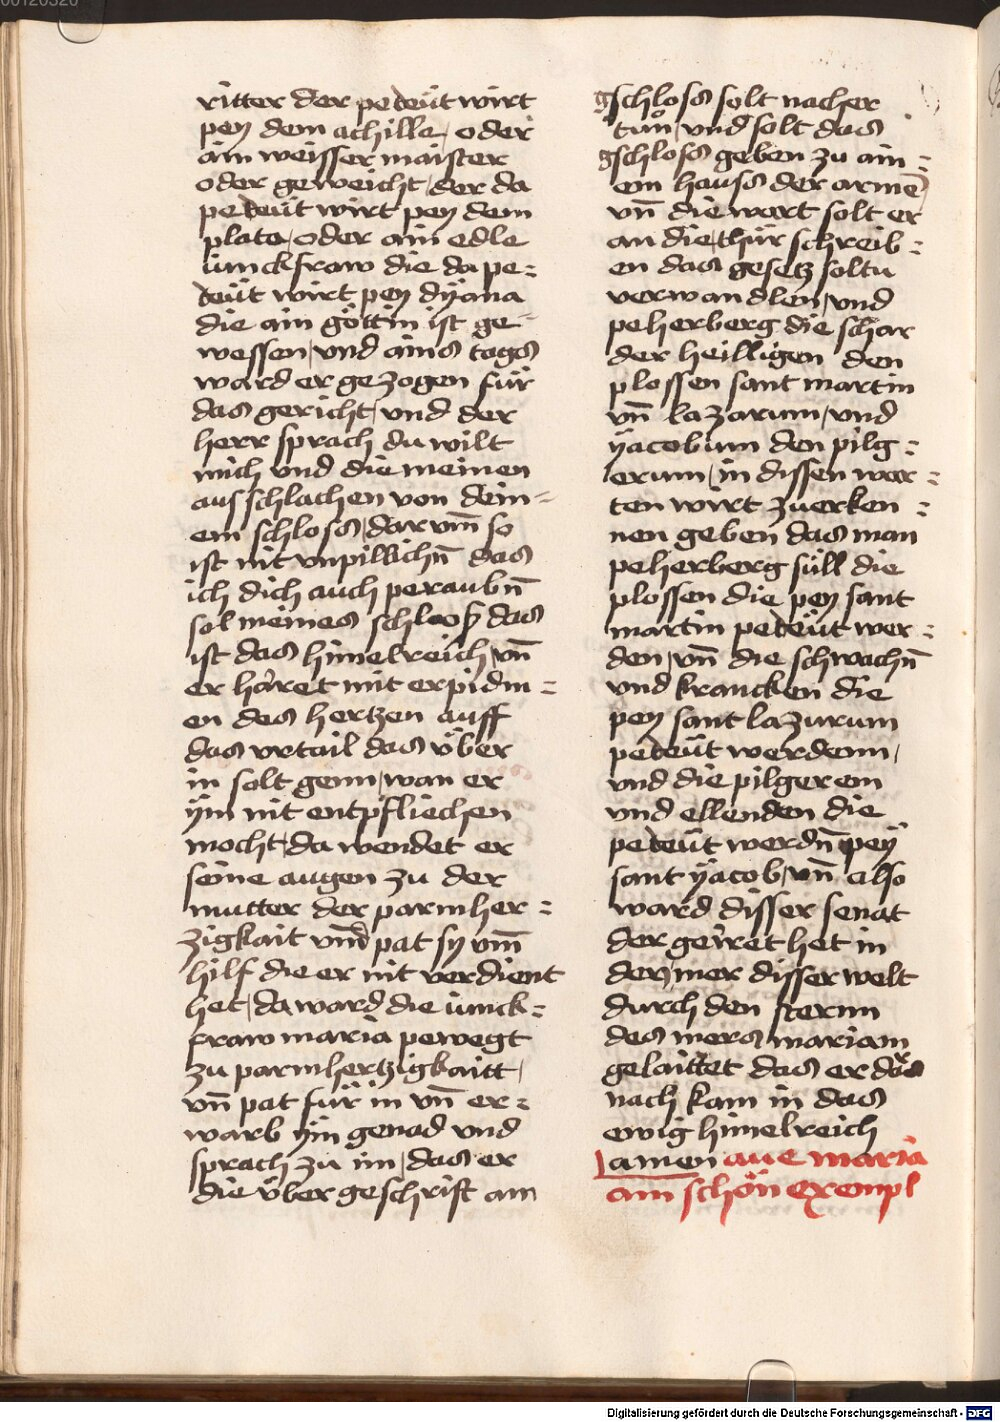 ritter der pedeüt wirt
pey dem achille / oder
ain weisser maister
oder geweicht / der da
pedeüt wirt pey dem
plato / oder ain edle
iunckfraw die da pe=
deüt wirt pey dÿana
die ain göttin ist ge=
wessen / vnd ains tags
ward er gezogen für
das gericht / vnd der
herr sprach du wilt
mich vnd die meinen
aus schlachen von dein=
em schloss / dar vm̄ so
ist nit vnpillichn̄ das
ich dich auch peraubn̄
sol meines schloß das
ist das himelreich / vn̄
er höret mit erpidm=
en des hertzen auff
das vrtail das über
in solt genn / wan er
ÿm nit entpfliechen
mocht / da wendet er
seine augen zu der
mutter der parmher=
zigkait vnd pat sy vm̄
hilf die er nit verdient
het / da ward die iunck=
fraw maria pewegt
zu parmhertzigkaitt /
vn̄ pat für in vn̄ er=
warb ÿm genad vnd
sprach zu im / das er
die übergeschrift am
gschloss solt nacher
tuon / vnd solt das
gschloss geben zu ain=
em hauss der armē
vn̄ die wort solt er
an die thür schreib=
en das gesetz soltu
verwandlen / vnd
peherberg die schar
der heilligen den
plossen sant martin
vn̄ lazarum / vnd
ÿacobum den pilg=
erum / in dissen wor=
ten wirt zuerken=
nen geben das man
peherberg süll die
plossen die pey sant
martin pedeüt wer=
den / vn̄ die schwachn̄
vnd krancken die
pey sant lazurum
pedeüt werdenn /
vnd die pilgerem
vnd ellenden die
pedeüt werdn̄ pey
sant ÿacob / vn̄ also
ward disser senat
der geirret het in
dem mer disser welt
durch den sternn
des mers mariam
gelaittet das er
nach kam in das
ewig himelreich
amen aue maria
ain schön exempl
Digitalisierung gefördert durch die Deutsche Forschungsgemeinschaft - DFG